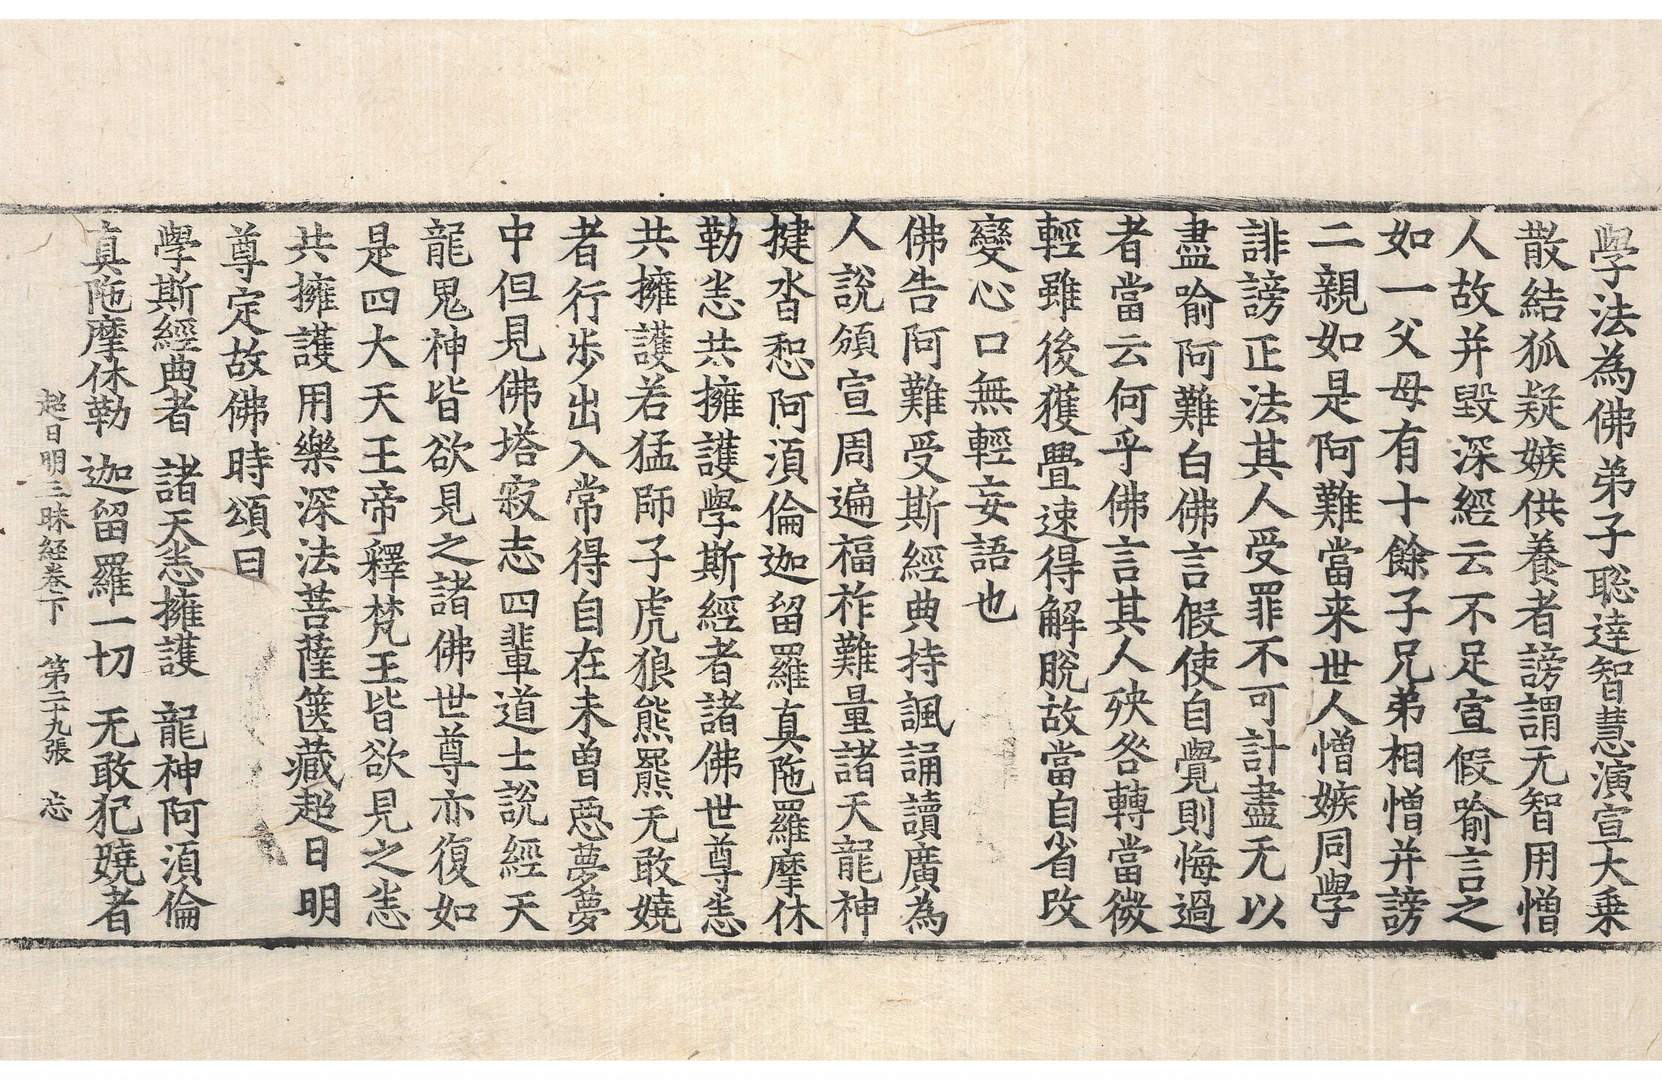 學法為佛弟子聡達智慧演宣大乗
散結狐疑嫉供養者謗謂无智用憎
人故并毀深經云不足宣假喻言之
如一父母有十餘子兄弟相憎并謗
二親如是阿難當来世人憎嫉同學
誹謗正法其人受罪不可計盡无以
盡喻阿難白佛言假使自覺則悔過
者當云何乎佛言其人殃咎轉當微
輕雖後獲疊速得解脫故當自省改
變心口無輕妄語也
佛告阿難受斯經典持諷誦讀廣為
人說頒宣周遍福祚難量諸天龍神
揵沓惒阿須倫迦留羅真陁羅摩休
勒恙共擁護學斯經者諸佛世尊恙
共擁護若猛師子虎狼熊羆无敢嬈
者行步出入常得自在未曾惡夢夢
中但見佛塔寂志四輩道士說經天
龍鬼神皆欲見之諸佛世尊亦復如
是四大天王帝釋梵王皆欲見之恙
共擁護用樂深法菩薩篋藏超日明
尊定故佛時頌曰
學斯經典者 諸天恙擁護 龍神阿須倫
真陁摩休勒 迦留羅一切 无敢犯嬈者
超日明三昧経卷下 第二十九張 忘